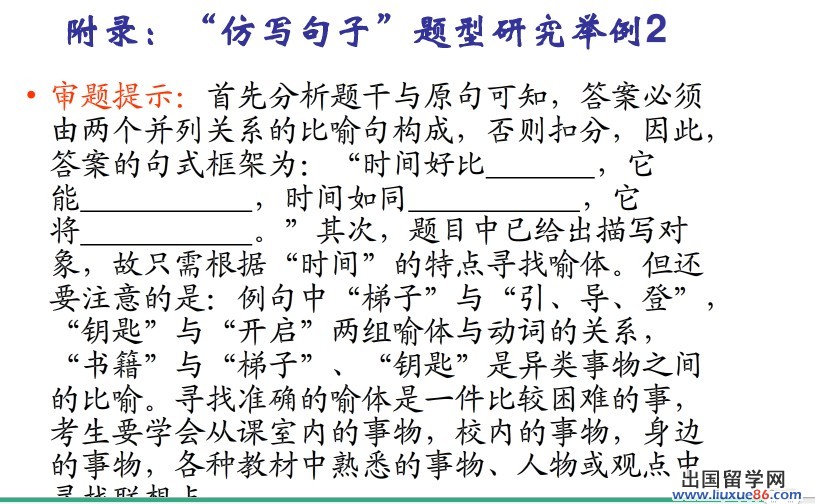 附录：“仿写句子”题型研究举例2
• 审题提示：首先分析题干与原句可知，答案必须
由两个并列关系的比喻句构成，否则扣分，因此，
答案的句式框架为：“时间好比_______，它
能___________，时间如同___________，它
将___________。”其次，题目中已给出描写对
象，故只需根据“时间”的特点寻找喻体。但还
要注意的是：例句中“梯子”与“引、导、登”，
“钥匙”与“开启”两组喻体与动词的关系，
“书籍”与“梯子”、“钥匙”是异类事物之间
的比喻。寻找准确的喻体是一件比较困难的事，
考生要学会从课室内的事物，校内的事物，身边
的事物，各种教材中熟悉的事物、人物或观点中
寻找联想点
出国留学网
www.liuxue86.com